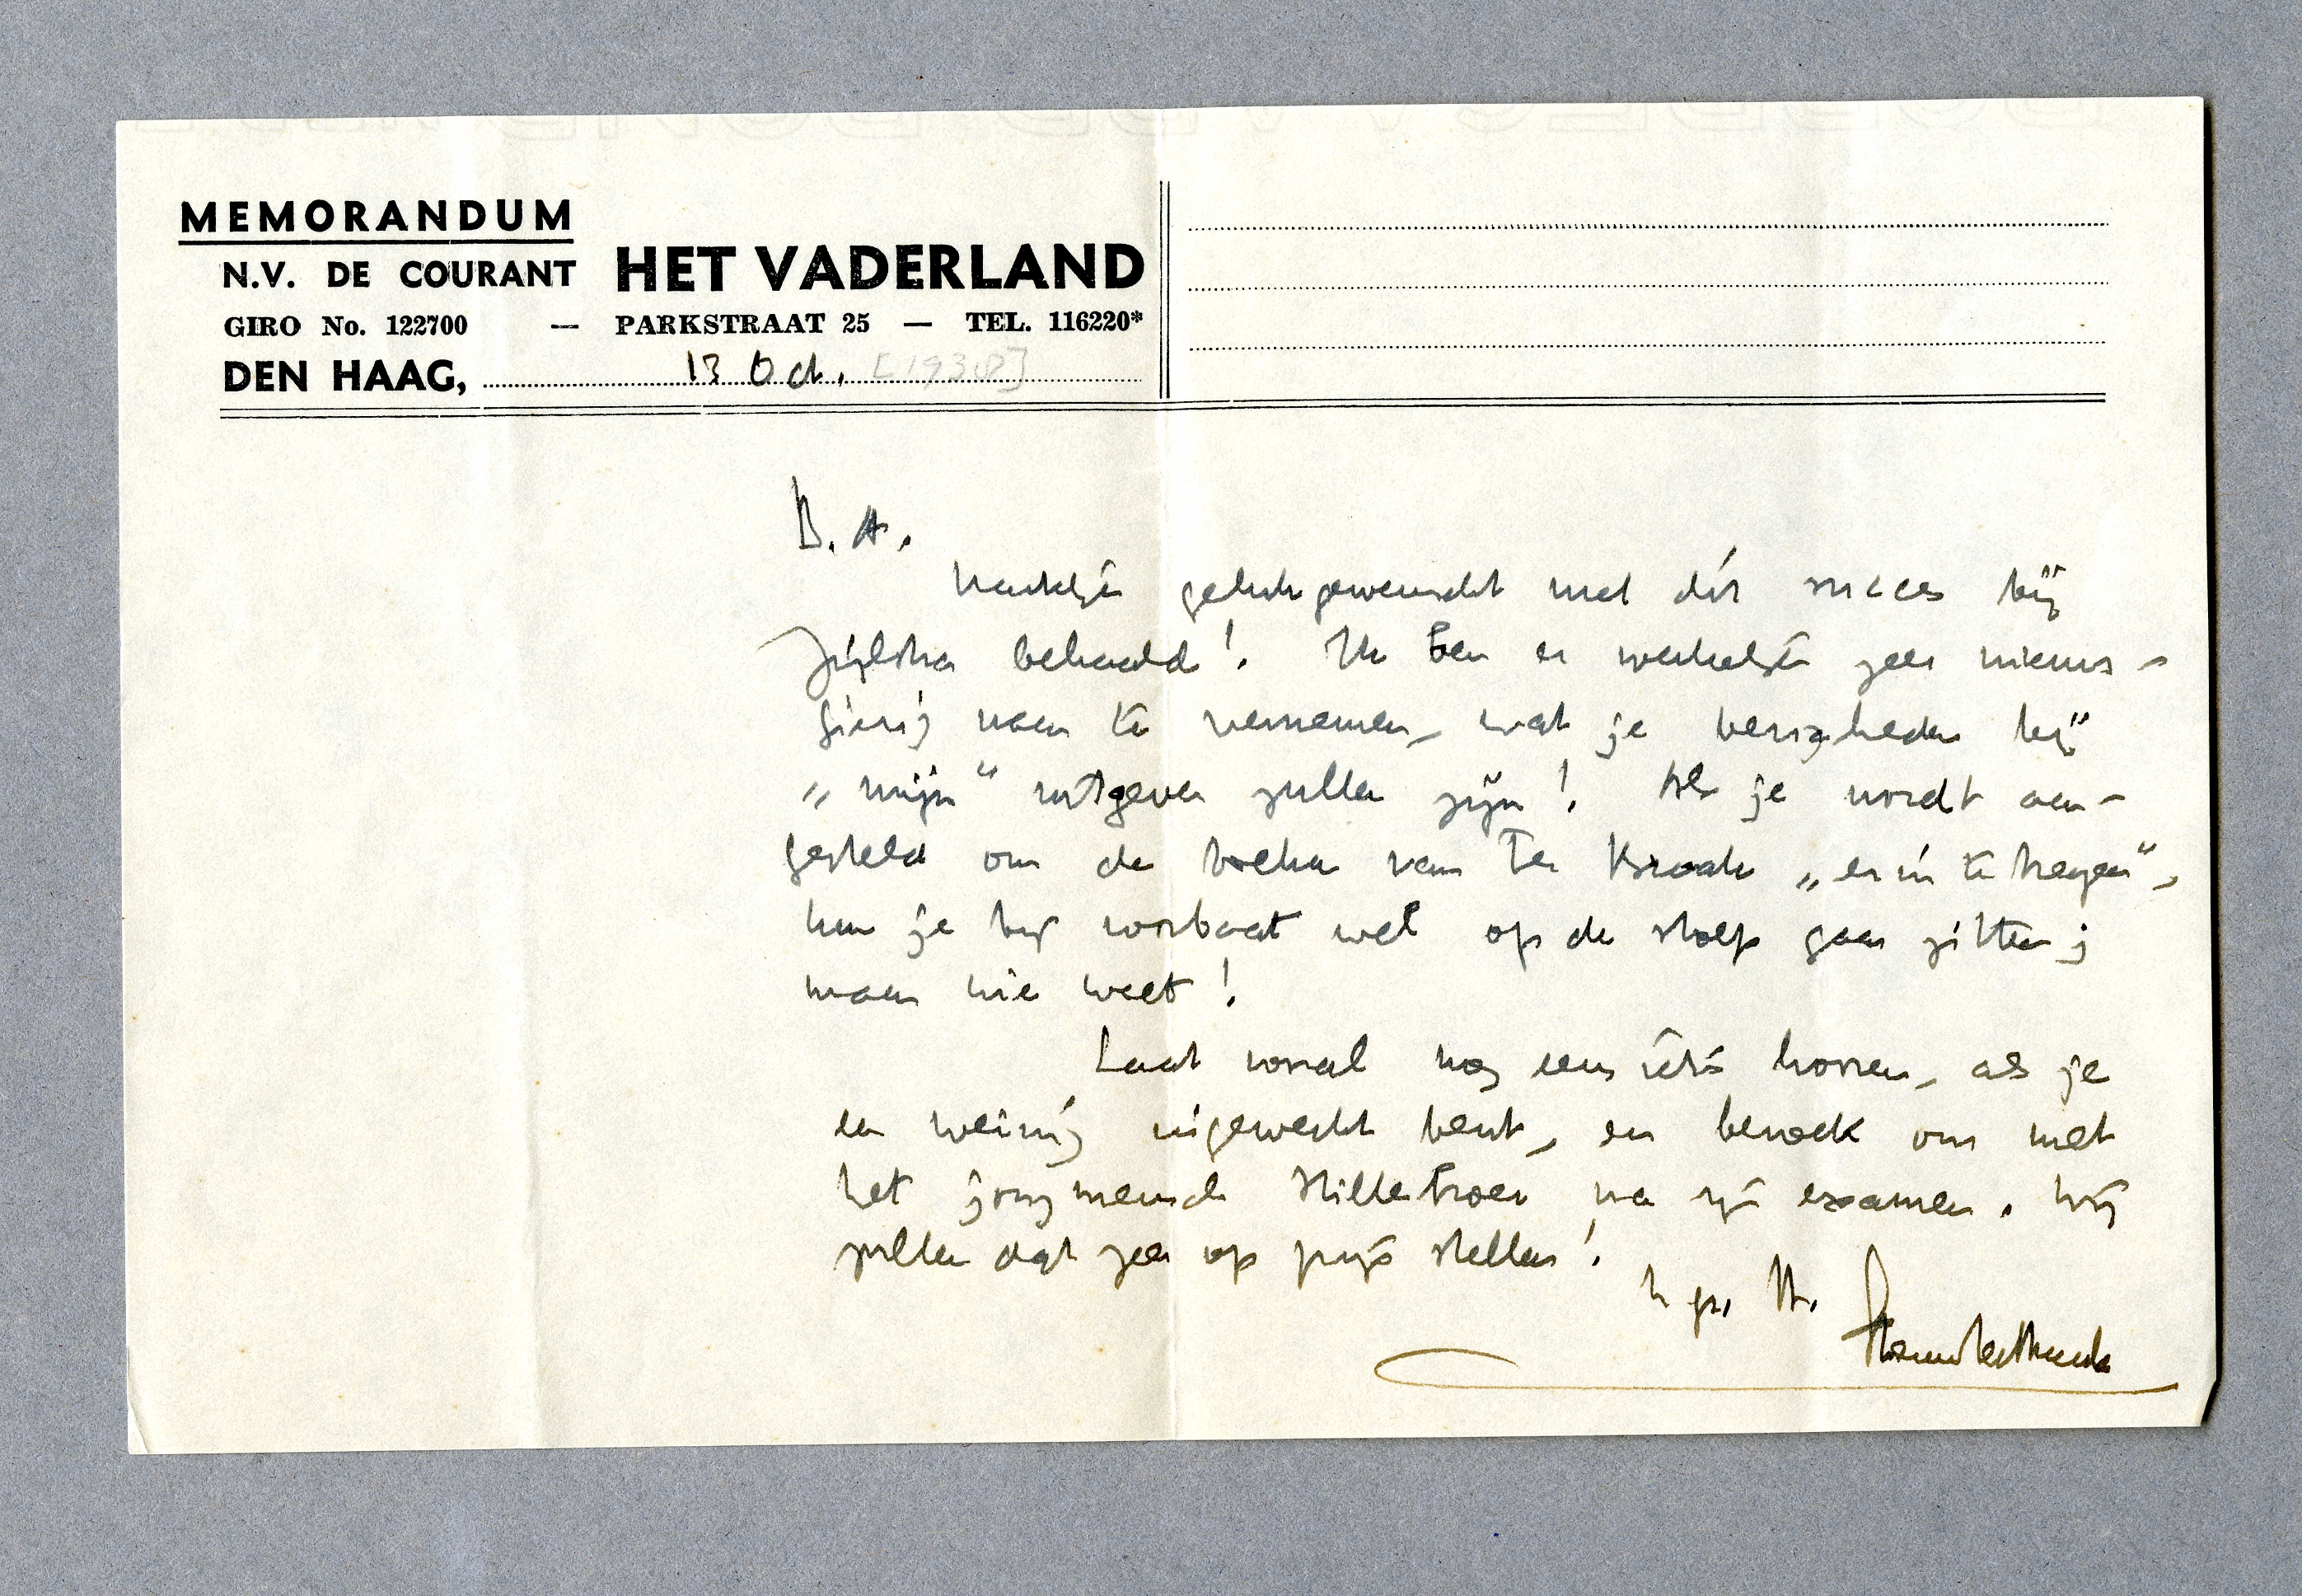 MEMORANDUM
N.V. DE COURANT HET VADERLAND
GIRO No. 122700 — PARKSTRAAT 25 — TEL. 116220*
DEN HAAG, 13 Oct. [1938]
B. A.
Hartelijk gelukgewenscht met dit succes bij
Zijlstra behaald! Ik ben er werkelijk zeer nieuws-
gierig naar te vernemen, wat je bezigheden bij
„mijn“ uitgever zullen zijn! Als je wordt aan-
gesteld om de boeken van Ter Braak „erin te krijgen“,
kun je bij voorbaat wel op de stoep gaan zitten;
maar wie weet!
Laat vooral nog eens iets hooren, als je
een weinig ingewerkt bent, en bezoek ons met
het jongmensch Hillebroer na zijn examen. Wij
zullen dat zeer op prijs stellen!
h. gr. tt.
Menno ter Braak